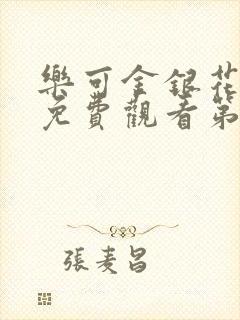 樂可金銀花
免費觀看第
張麦昌